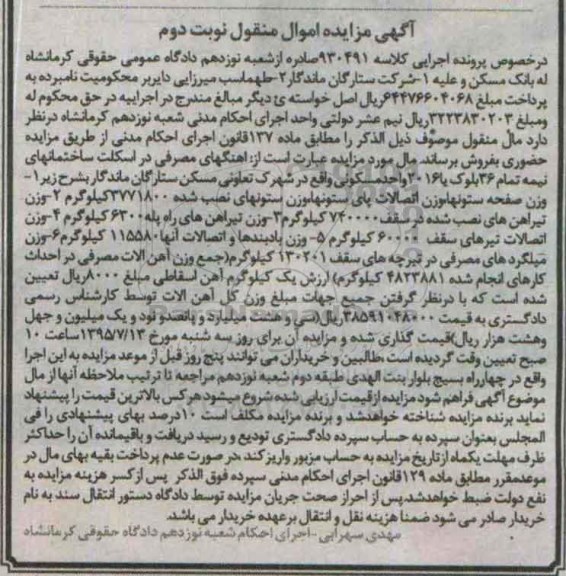 آگهی مزایده اموال منقول نوبت دوم
درخصوص پرونده اجرایی کلاسه ۹۳۰۴۹۱صادره ازشعبه نوزدهم دادگاه عمومی حقوقی کرمانشاه
له بانک مسکن و علیه ۱-شرکت ستارگان ماندگار۲-طهماسب میرزایی دایربر محکومیت نامبرده به
پرداخت مبلغ ۶۴۴۷۶۶۰۴۰۶۸ریال اصل خواسته ی دیگر مبالغ مندرج در اجراییه در حق محکوم له
ومبلغ ۳۲۲۳۸۳۰۲۰۳ریال نیم عشر دولتی واحد اجرای احکام مدنی شعبه نوزدهم کرمانشاه درنظر
دارد مال منقول موصوف ذیل الذکر را مطابق ماده ۱۳۷قانون اجرای احکام مدنی از طریق مزایده
حضوری بفروش برساند. مال مورد مزایده عبارت است از: اهنگهای مصرفی در اسکلت ساختمانهای
نیمه تمام ۳۶بلوک یا۲۰۱۶واحدمسکونی واقع در شهرک تعاونی مسکن ستارگان ماندگار بشرح زیر۱-
وزن صفحه ستونهاوزن اتصالات پای ستونهاوزن ستونهای نصب شده ۳۷۷۱۸۰۰ کیلوگرم ۲-وزن
تیراهن های نصب شده در سقف۷۴۰۰۰۰ کیلوگرم۳-وزن تیراهن های راه پله۶۳۰۰ کیلوگرم ۴-وزن
اتصالات تیرهای سقف کیلوگرم ۵- وزن بادبندها و اتصالات آنها۱۱۵۵۸۰ کیلوگرم۶-وزن
میلگردهای مصرفی در تیرچه های سقف ۱۳۰۲۰۱ کیلوگرم(جمع وزن آهن آلات مصرفی در احداث
کارهای انجام شده ۴۸۲۳۸۸۱ کیلوگرم) ارزش یک کیلوگرم آهن اسقاطی مبلغ ۸۰۰۰ریال تعیین
شده است که با درنظر گرفتن جمیع جهات مبلغ وزن کل آهن آلات توسط کارشناس رسمی
دادگستری به قیمت ۳۸۵۹۱۰۴۸۰۰۰ریال(سی و هشت میلیارد و پانصدو نود و یک میلیون و چهل
وهشت هزار ریال)قیمت گذاری شده و مزایده آن برای روز سه شنبه مورخ ۱۳۹۵/۷/۱۳ساعت ۱۰
صبح تعیین وقت گردیده است،طالبین و خریداران می توانند پنج روز قبل از موعد مزایده به این اجرا
واقع در چهارراه بسیج بلوار بنت الهدی طبقه دوم شعبه نوزدهم مراجعه تا ترتیب ملاحظه آنها از مال
موضوع آگهی فراهم شود مزایده ازقیمت ارزیابی شده شروع میشود هرکس بالاترین قیمت را پیشنهاد
نماید برنده مزایده شناخته خواهدشد و برنده مزایده مکلف است ۱۰درصد بهای پیشنهادی را فی
المجلس بعنوان سپرده به حساب سپرده دادگستری تودیع و رسید دریافت و باقیمانده آن را حداکثر
ظرف مهلت یکماه ازتاریخ مزایده به حساب مزبور واریز کند،در صورت عدم پرداخت بقیه بهای مال در
موعدمقرر مطابق ماده ۱۲۹قانون اجرای احکام مدنی سپرده فوق الذکر پس ازکسر هزینه مزایده به
نفع دولت ضبط خواهدشد.پس از احراز صحت جریان مزایده توسط دادگاه دستور انتقال سند به نام
خریدار صادر می شود ضمنا هزینه نقل و انتقال برعهده خریدار می باشد.
مهدی سهرابی -اجرای احکام شعبه نوزدهم دادگاه حقوقی کرمانشاه